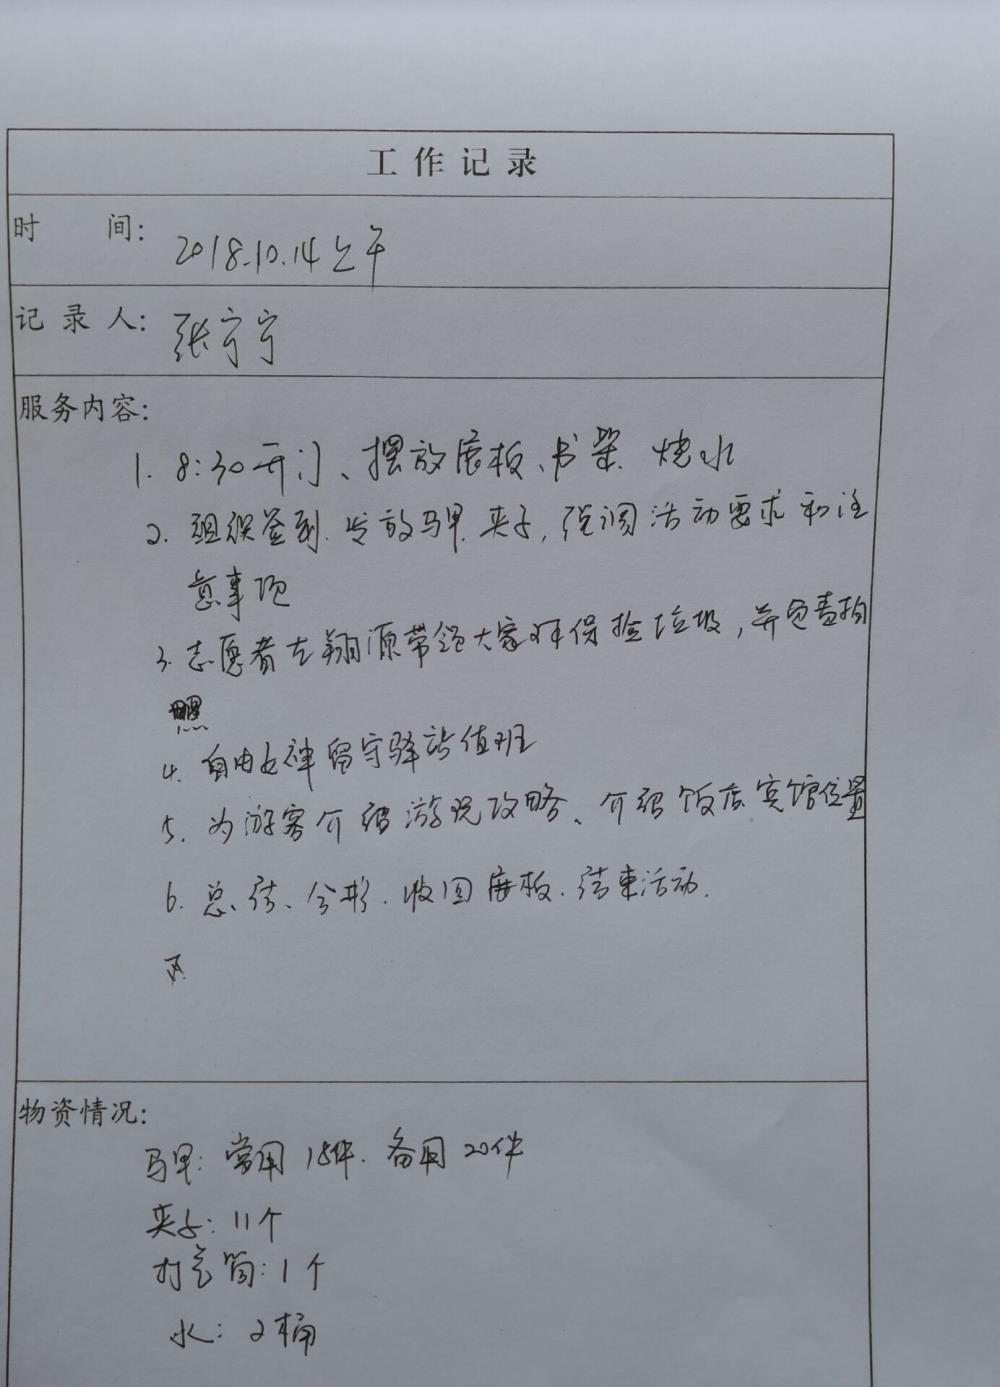 工作记录
时 间: 2018.10.14上午
记录人: 张宁宁
服务内容:
1. 8:30开门、摆放展板、书架、烧水
2. 组织签到、发放马甲、夹子,强调活动要求和注
意事项
3. 志愿者左翔源带领大家环保捡垃圾,并负责拍
照
4. 自由女神留守驿站值班
5. 为游客介绍游玩攻略、介绍饭店宾馆位置
6. 总结、合影、收回展板、结束活动.
物资情况:
马甲: 常用18件. 备用20件
夹子: 11个
打气筒: 1个
水: 2桶